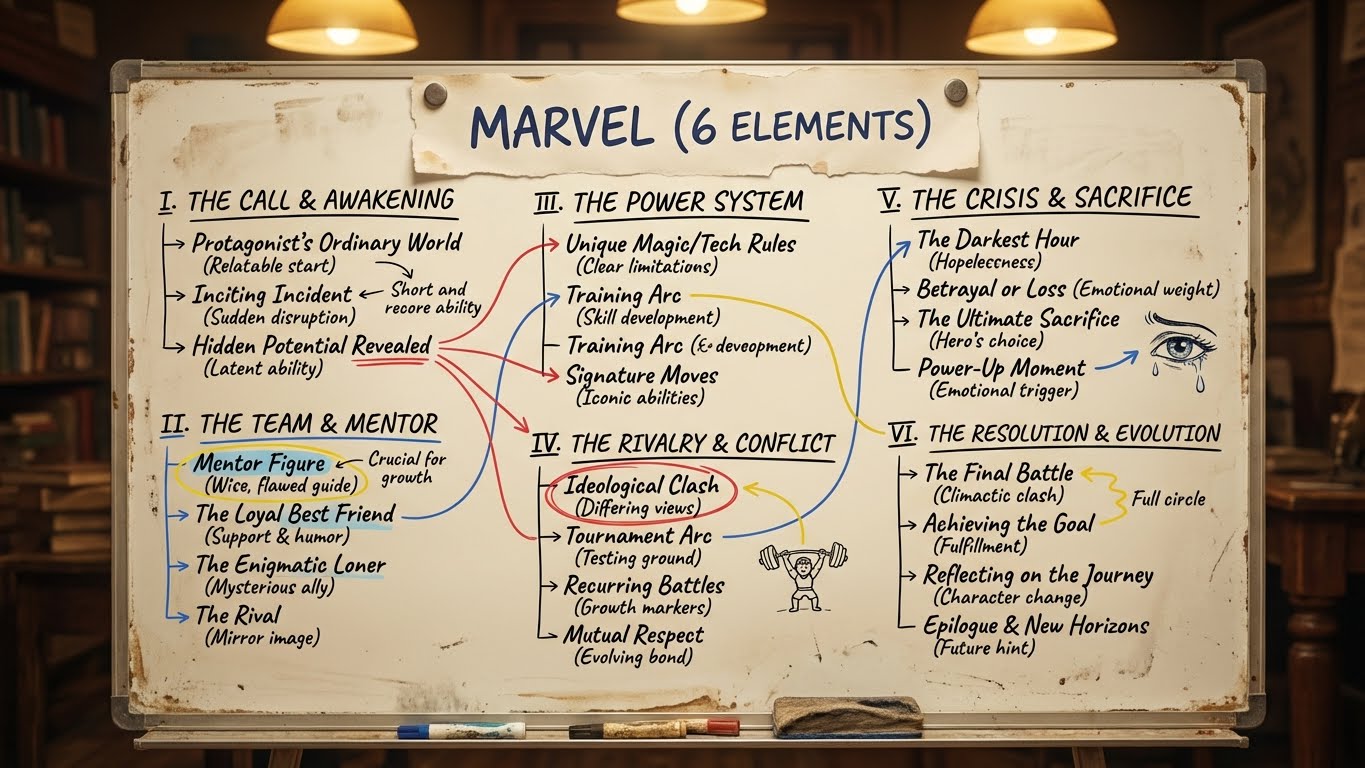 MARVEL (6 ELEMENTS)
I. THE CALL & AWAKENING
Protagonist's Ordinary World
(Relatable start)
Inciting Incident
(Sudden disruption)
Short and
recore ability
Hidden Potential Revealed
(Latent ability)
II. THE TEAM & MENTOR
Mentor Figure
(Wice, flawed guide)
Crucial for
growth
The Loyal Best Friend
(Support & humor)
The Enigmatic Loner
(Mysterious ally)
The Rival
(Mirror image)
III. THE POWER SYSTEM
Unique Magic/Tech Rules
(Clear limitations)
Training Arc
(Skill development)
Training Arc
Signature Moves
(Iconic abilities)
IV. THE RIVALRY & CONFLICT
Ideological Clash
(Differing views)
Tournament Arc
(Testing ground)
Recurring Battles
(Growth markers)
Mutual Respect
(Evolving bond)
V. THE CRISIS & SACRIFICE
The Darkest Hour
(Hopelecsness)
Betrayal or Loss (Emotional weight)
The Ultimate Sacrifice
(Hero's choice)
Power-Up Moment
(Emotional trigger)
VI. THE RESOLUTION & EVOLUTION
The Final Battle
(Climactic clash)
Full circle
Achieving the Goal
(Fulfillment)
Reflecting on the Journey
(Character change)
Epilogue & New Horizons
(Future hint)